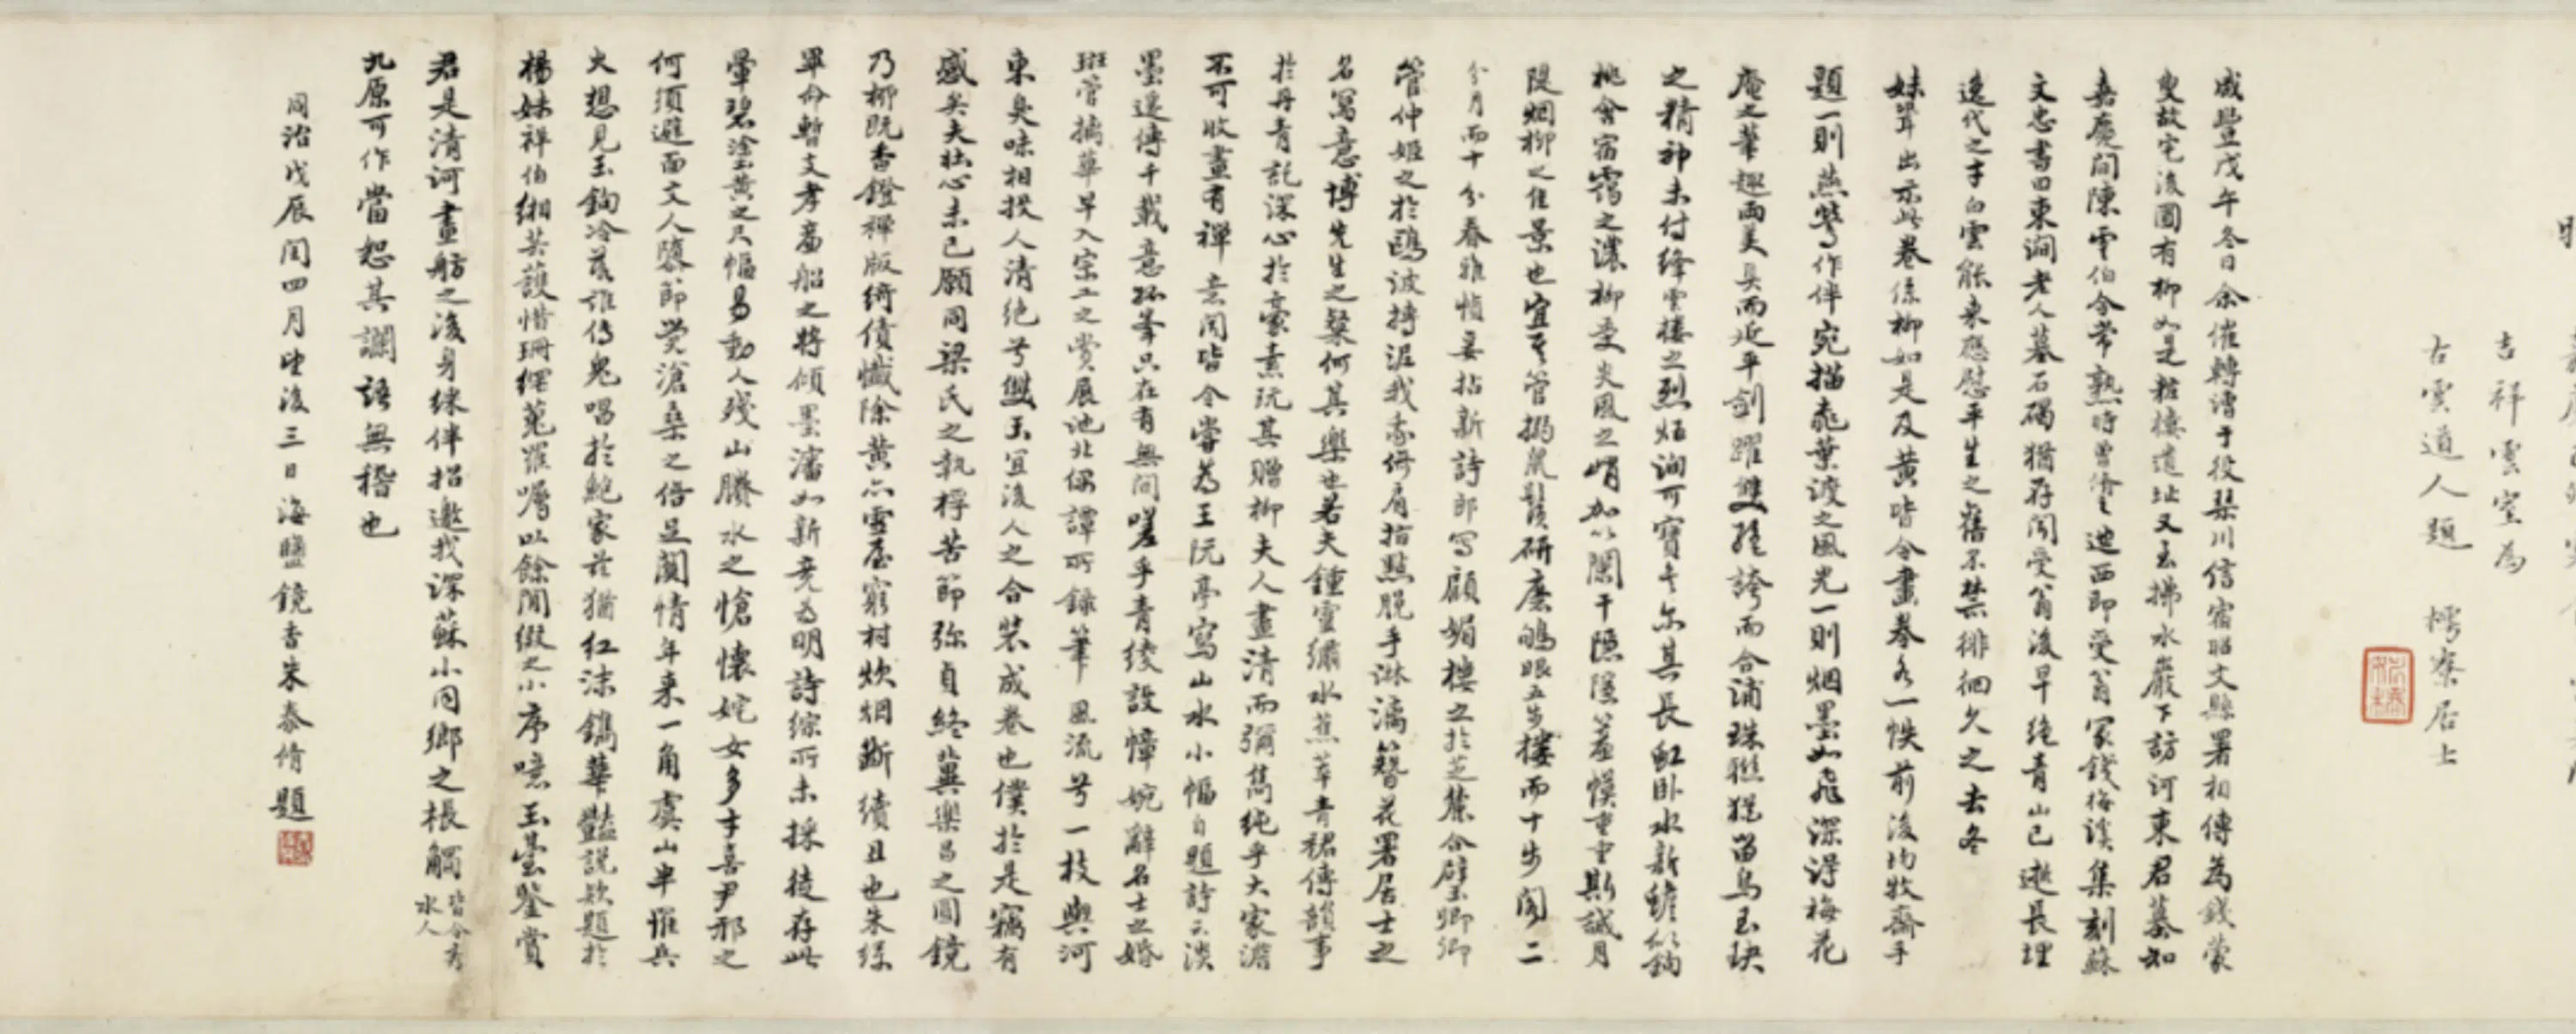 吉祥雲室為
古雲道人題 樗寮居士
咸豐戊午冬日余催轉漕于役琹川信宿昭文縣署相傳為錢蒙
叟故宅後園有柳如是粧樓遺址又玉拂水巖下訪河東君墓知
嘉慶間陳雲伯令常熟時曾修之迪西即受翁冢錢梅谿集刻蘇
文忠書曰東澗老人墓石碣猶存聞受翁後早絕青山已邈長埋
逸代之才白雲能來應慰平生之舊不禁徘徊久之去冬
妹聟出示此卷係柳如是及黃皆令畫卷各一帙前後均牧齋手
題一則燕鶯作伴宛描桃葉渡之風光一則烟墨如飛深得梅花
庵之筆趣兩美具而延平劍躍雙殊誇而合浦珠聯猩留鳥玉玦
之精神未付絳雲樓之烈炬洵可寶也爾其長虹臥水新蟾似鉤
桃會宿靄之濃柳受炎風之峭加以闌干隱隱簾幙重重斯誠月
隄烟柳之佳景也宜其管搦鼠鬚研磨鴝眼五步樓而十步閣二
分月而十分春雅慎妾拈新詩郎寫顧媚樓之於芝麓合璧卿卿
管仲姬之於鷗波摶泥我我倚肩指點脫手淋漓簪花署居士之
名寫意博先生之粲何其樂也若夫鍾靈繡水蕉萃青裙傳韻事
於丹青託深心於豪素玩其贈柳夫人畫清而彌雋純乎大家澹
不可收畫有禪意聞皆令嘗為王阮亭寫山水小幅自題詩云淡
墨遙傳千載意孤峯只在有無間嗟乎青綾設幛婉辭名士之婚
班管摛華早入宗工之賞展池北偶譚所錄筆思流兮一枝與河
東臭味相投人清絕兮雙玉宜後人之合裝成卷也僕於是竊有
感矣夫壯心未已願同梁氏之執桴苦節弥貞終冀樂昌之圓鏡
乃柳既香鐙禪版綺債懺除黃亦雪屋窮村炊烟斷續且也朱絲
畢命暫支孝廉船之將傾墨瀋如新竟為明詩綜所未採徒存此
暈碧塗黃之尺幅易動人殘山賸水之愴懷姹女多才喜尹邢之
何須避面文人隳節與滄桑之倍足關情年來一角虞山半罹兵
火想見玉鉤冷落誰傳鬼唱於鮑家於猶紅沫鐫華豔說款題於
楊妹祥伯緗芸護惜珊網蒐羅囑以餘閒綴之小序噫玉臺鑒賞
君是清河畫舫之後身綵伴招邀我深蘇小同鄉之棖觸皆令秀水人
九原可作當恕其讕語無稽也
同治戊辰閏四月望後三日海鹽鏡香朱泰脩題